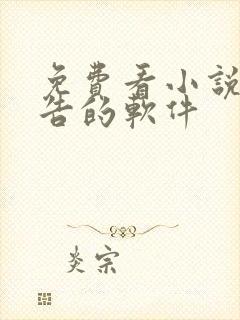 免費看小說
告的軟件
炎宗